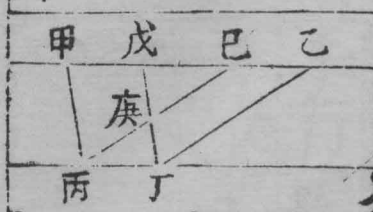 甲 戊 巳 乙
庚
丙 丁